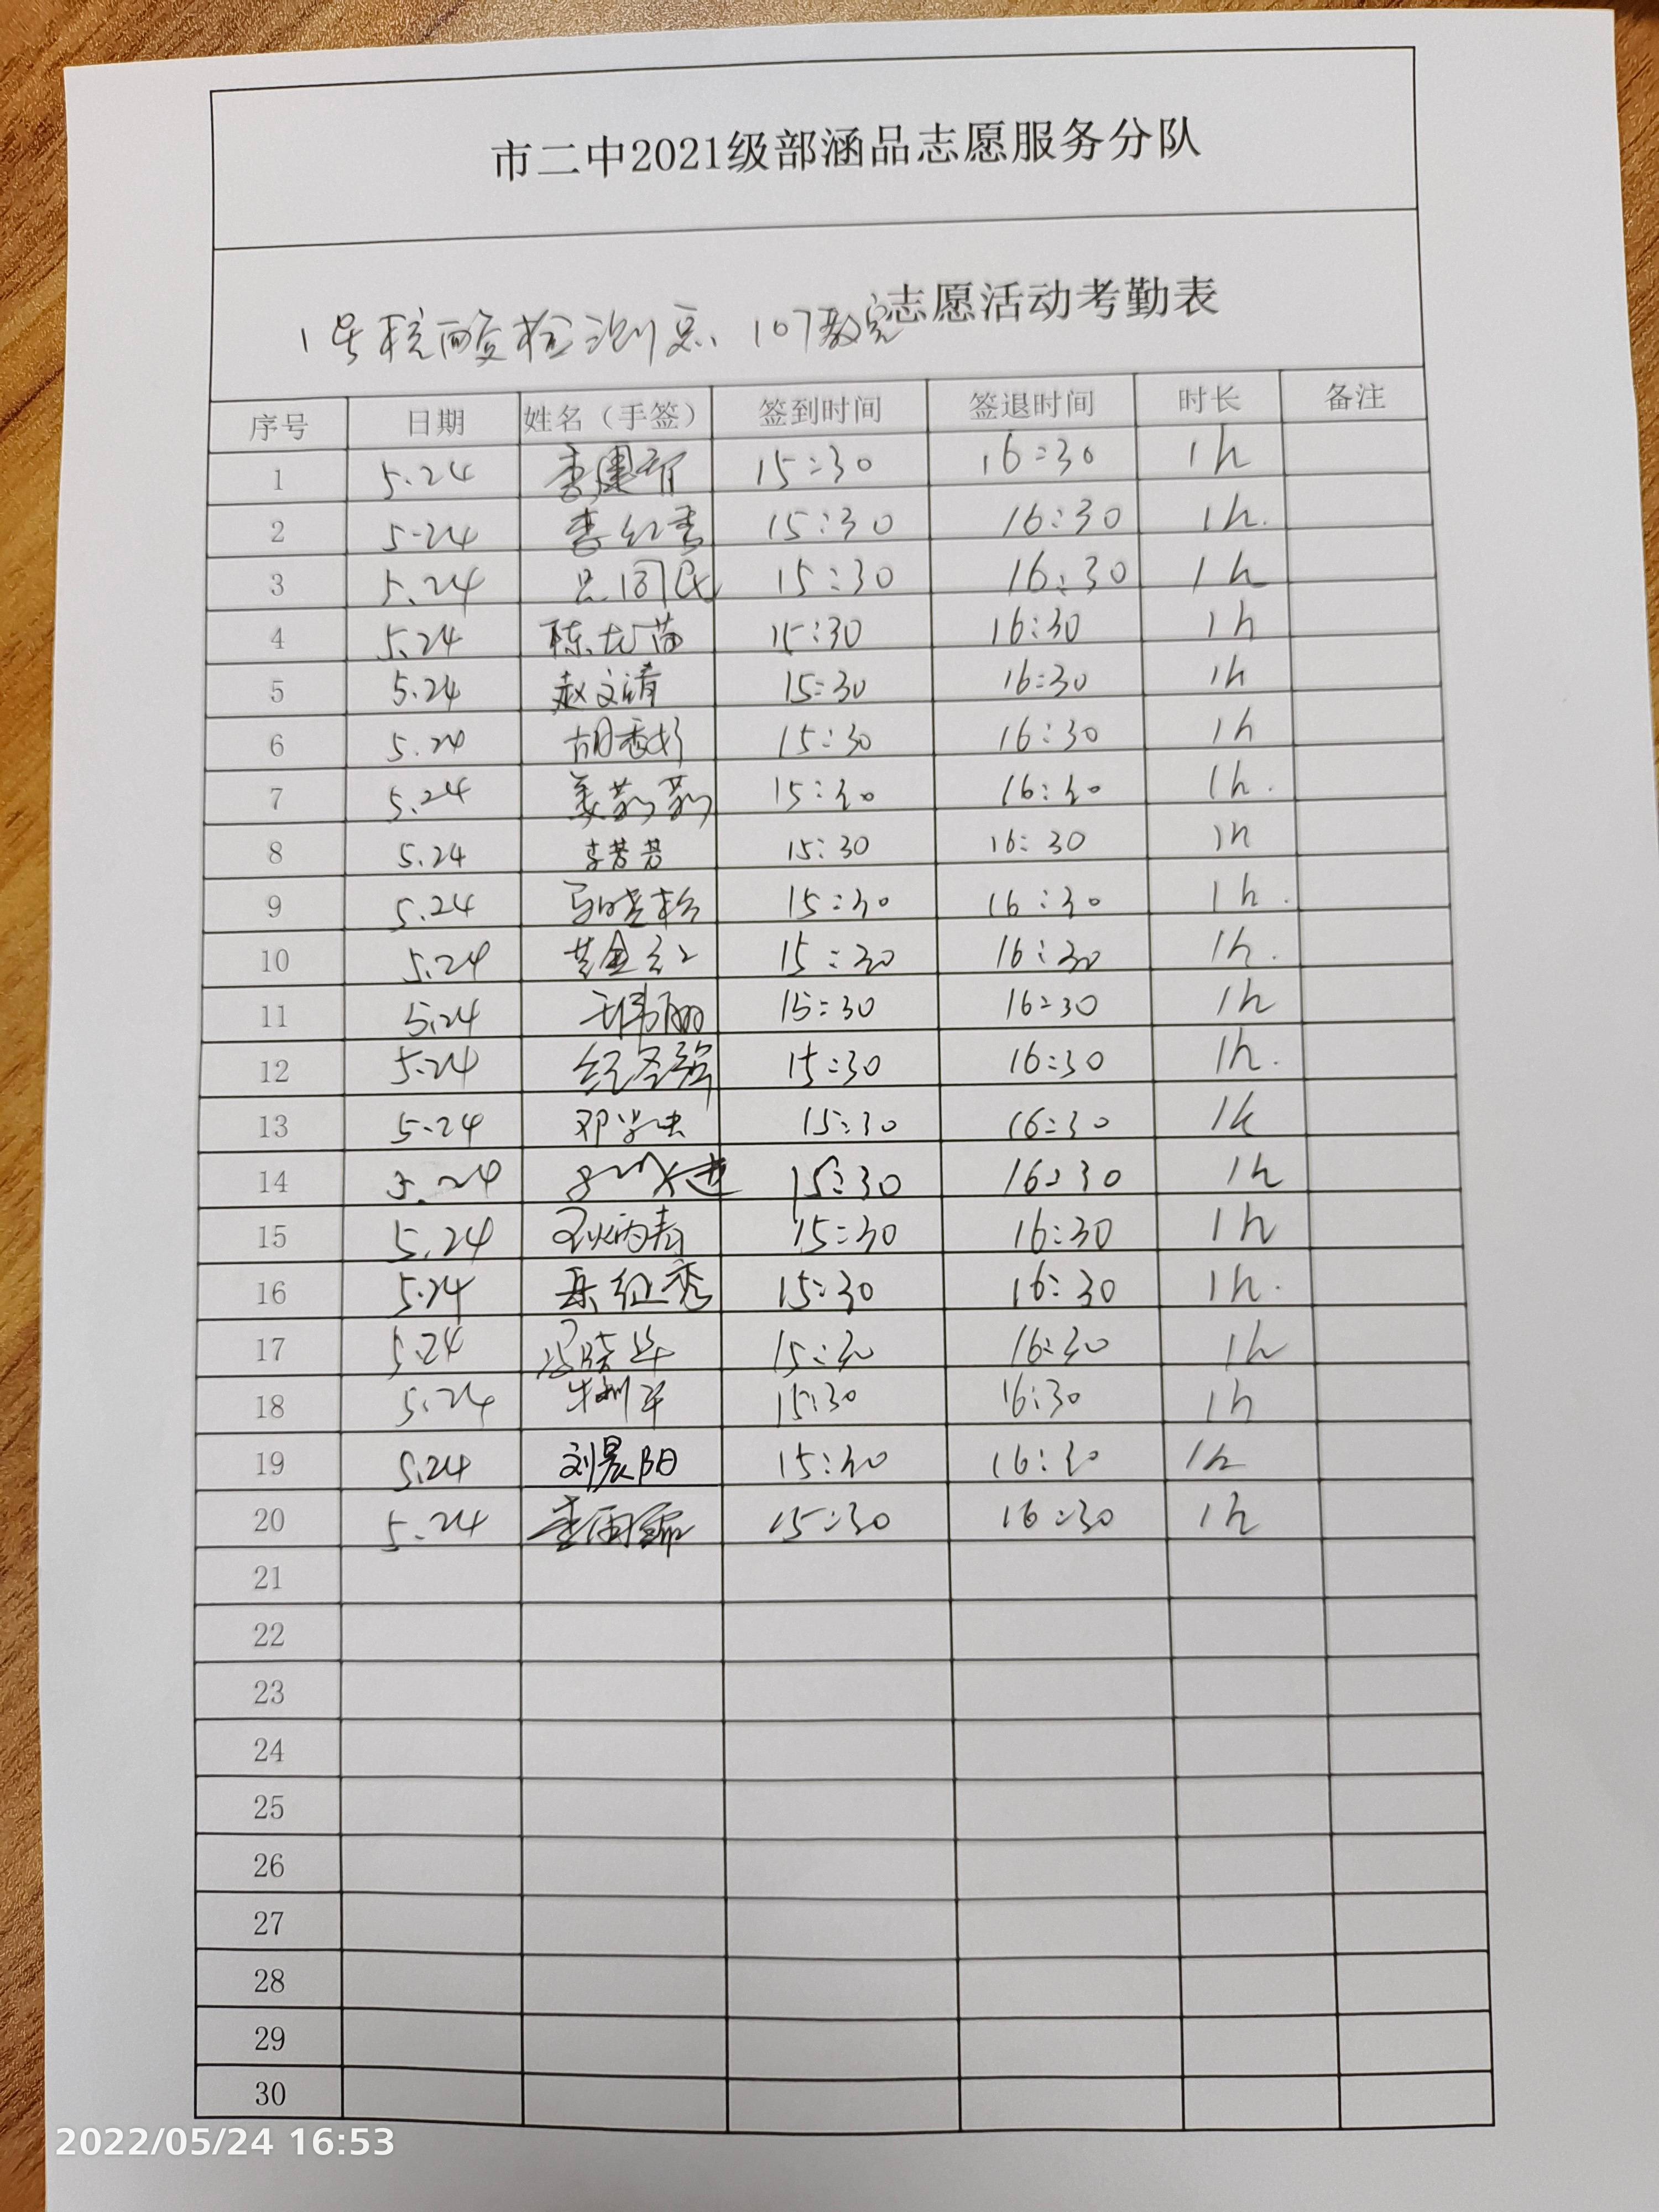 市二中2021级部涵品志愿服务分队
1号核酸检测点、107教室志愿活动考勤表
序号 日期 姓名（手签） 签到时间 签退时间 时长 备注
1 5.24 15:30 16:30 1h
2 5.24 李红秀 15:30 16:30 1h.
3 5.24 15:30 16:30 1h
4 5.24 15:30 16:30 1h
5 5.24 赵文清 15:30 16:30 1h
6 5.24 15:30 16:30 1h
7 5.24 姜莉莉 15:30 16:30 1h.
8 5.24 李芳芳 15:30 16:30 1h
9 5.24 15:30 16:30 1h.
10 5.24 黄金红 15:30 16:30 1h.
11 5.24 15:30 16:30 1h
12 5.24 15:30 16:30 1h.
13 5.24 15:30 16:30 1h
14 5.24 15:30 16:30 1h
15 5.24 15:30 16:30 1h
16 5.24 岳红秀 15:30 16:30 1h.
17 5.24 冯晓华 15:30 16:30 1h
18 5.24 15:30 16:30 1h
19 5.24 刘晨阳 15:30 16:30 1h
20 5.24 15:30 16:30 1h
21
22
23
24
25
26
27
28
29
30
2022/05/24 16:53